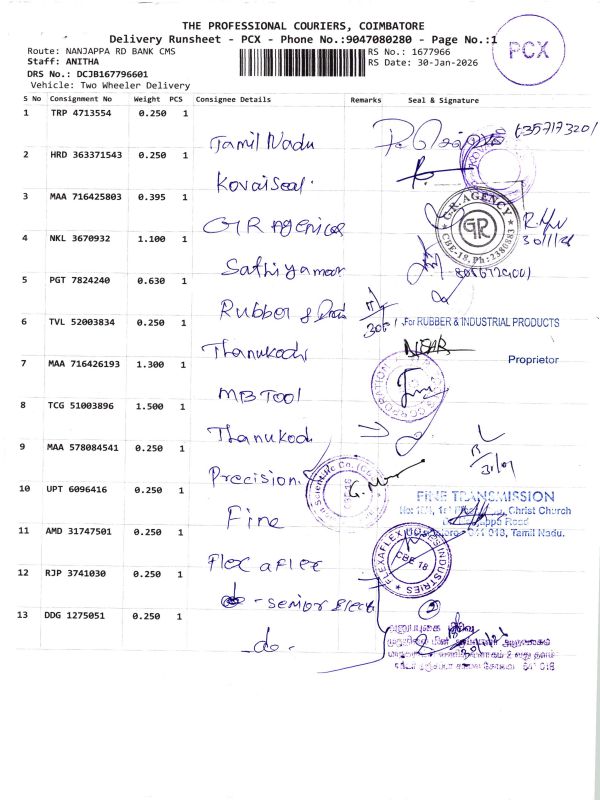 THE PROFESSIONAL COURIERS, COIMBATORE
Delivery Runsheet - PCX - Phone No.:9047080280 - Page No.:1
PCX
Route: NANJAPPA RD BANK CMS
RS No.: 1677966
Staff: ANITHA
RS Date: 30-Jan-2026
DRS No.: DCJB167796601
Vehicle: Two Wheeler Delivery
S No Consignment No Weight PCS Consignee Details Remarks Seal & Signature
1 TRP 4713554 0.250 1 Tamil Nadu
2 HRD 363371543 0.250 1 Kovai Seal.
3 MAA 716425803 0.395 1 GR Agencies
G.R. AGENCY
GR
CBE-18. Ph: 2380883
4 NKL 3670932 1.100 1 Sathiyamoor
5 PGT 7824240 0.630 1 Rubber &
For RUBBER & INDUSTRIAL PRODUCTS
Proprietor
6 TVL 52003834 0.250 1 Thanukodi
7 MAA 716426193 1.300 1 MB Tool
8 TCG 51003896 1.500 1 Thanukodi
9 MAA 578084541 0.250 1 Precision.
10 UPT 6096416 0.250 1 Fine
FINE TRANSMISSION
Christ Church
Road
641 018, Tamil Nadu.
11 AMD 31747501 0.250 1 Flex a Flex
FLEXAFLEX HOSES INDUSTRIES
CBE 18
12 RJP 3741030 0.250 1 - Senior Elect
13 DDG 1275051 0.250 1 do.